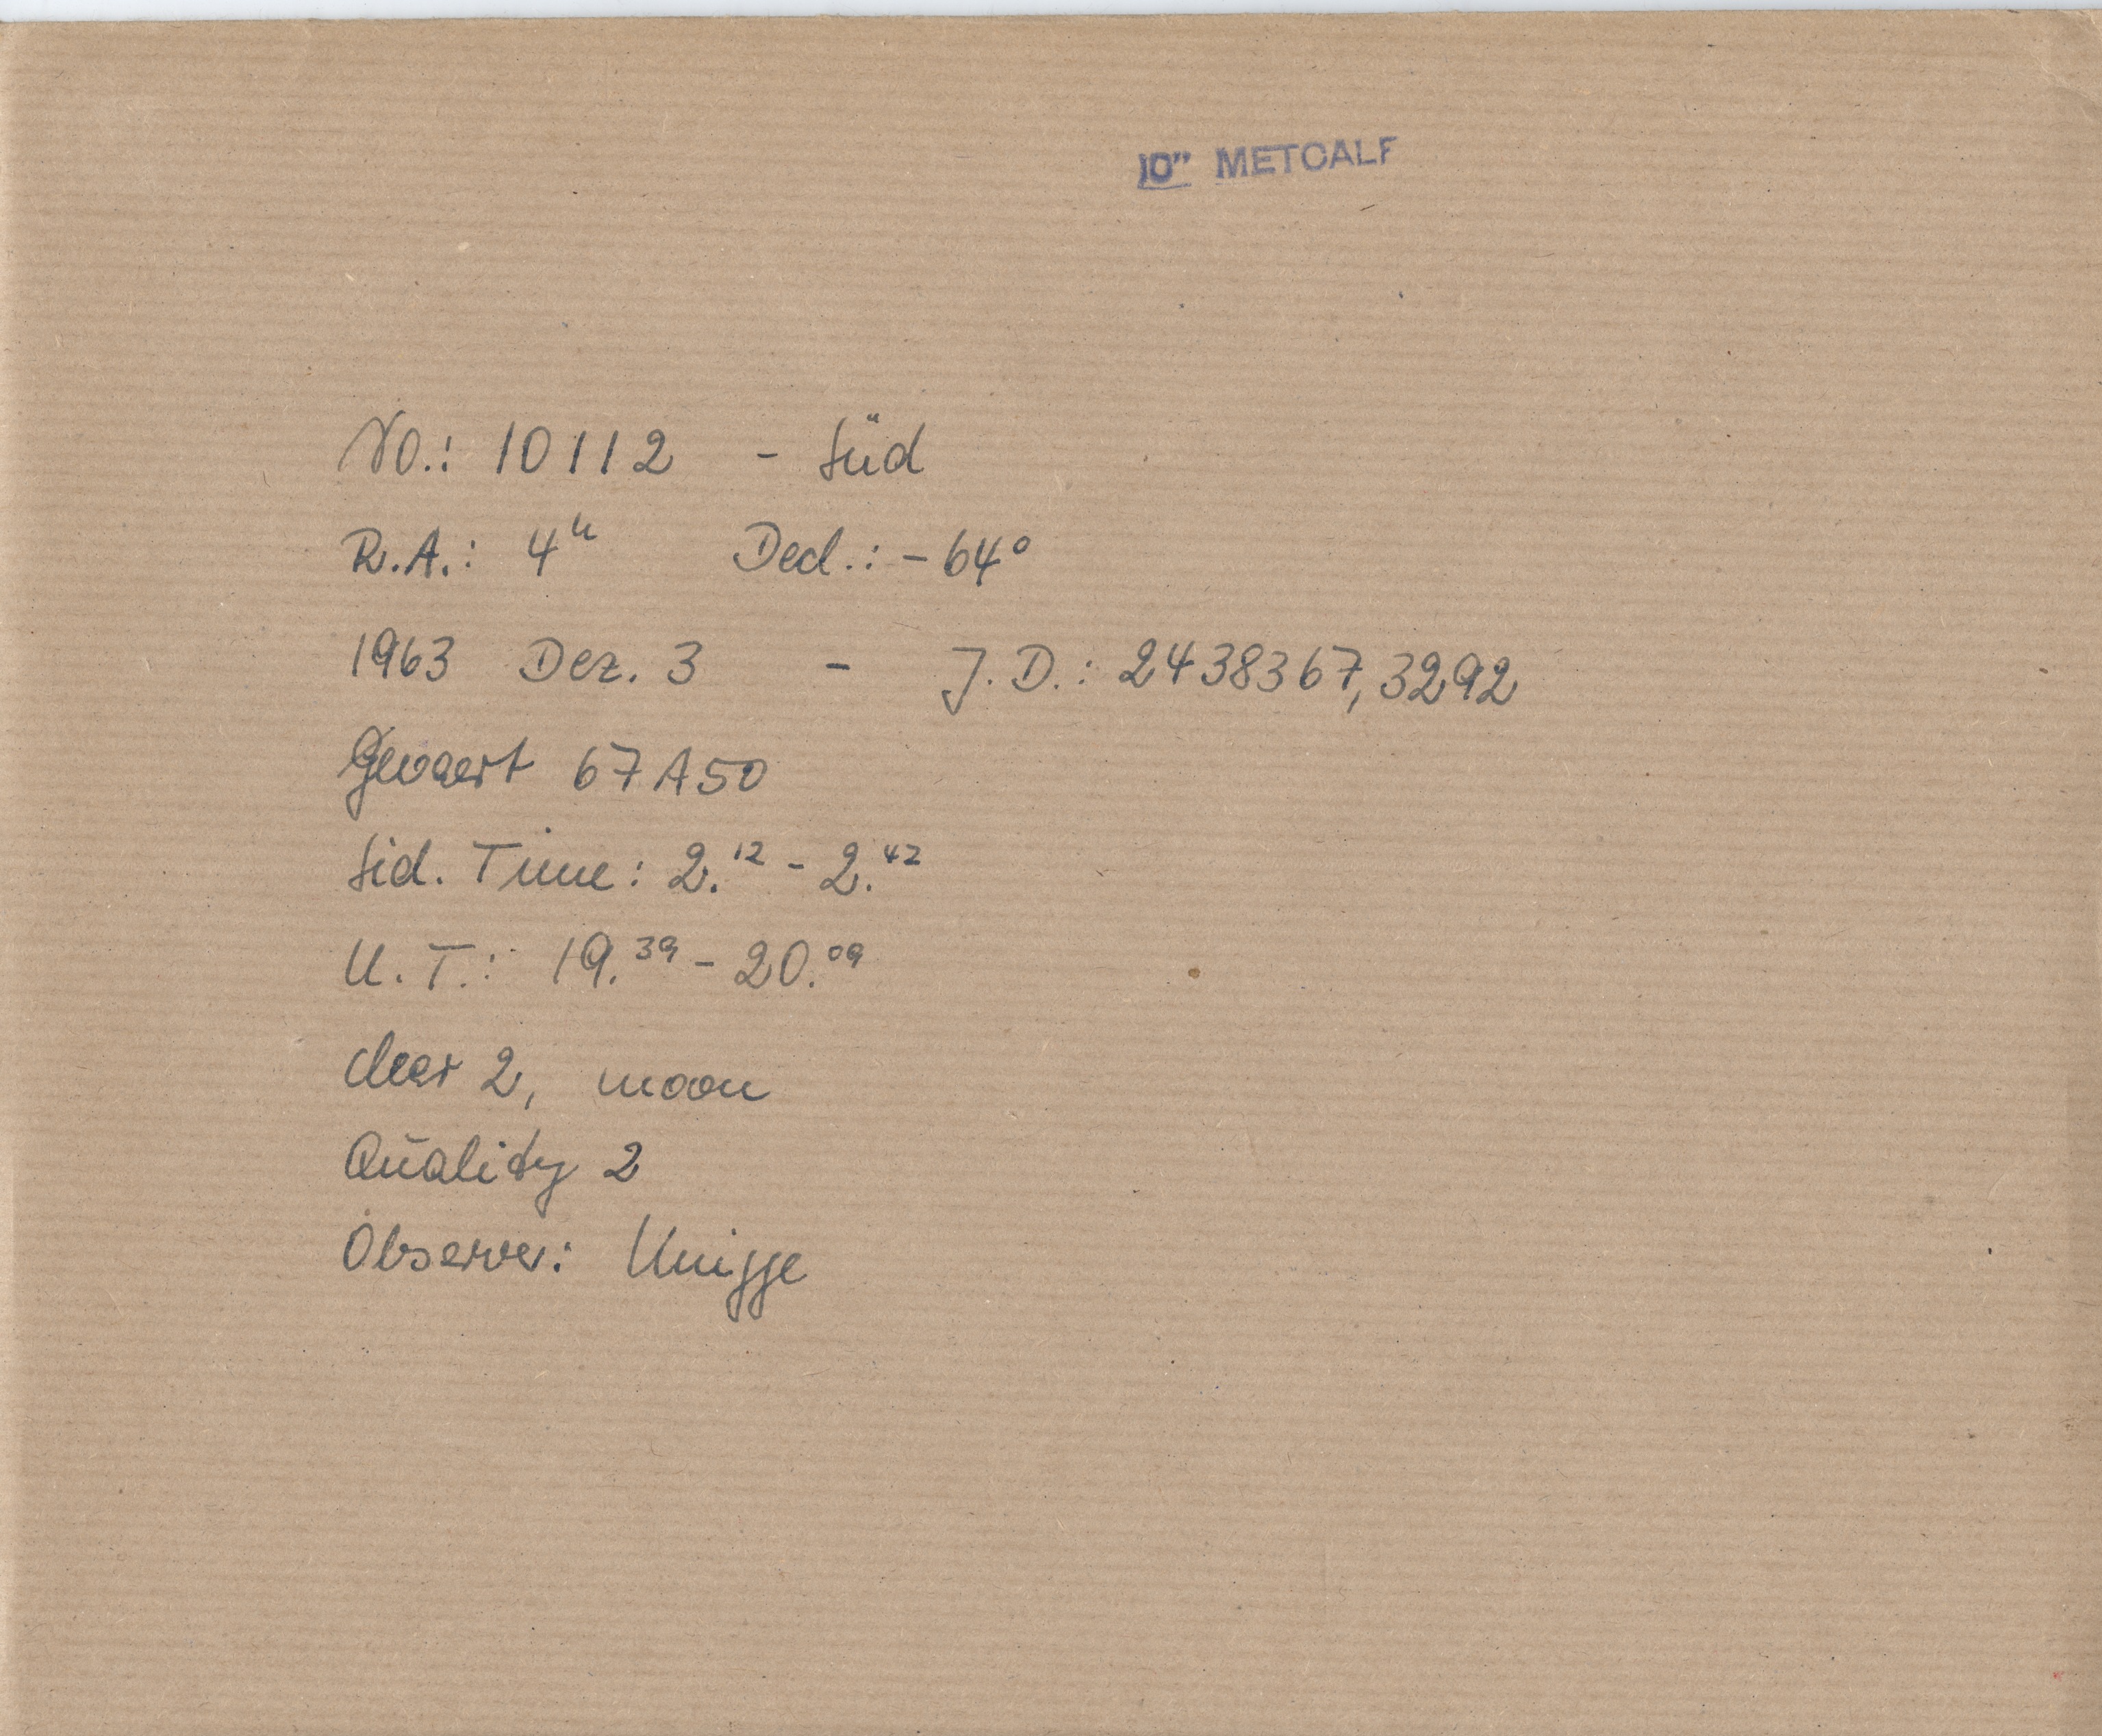 10" METCALF
No.: 10112 - Süd
R.A.: 4h Decl.: -64°
1963 Dez. 3 - J.D.: 2438367,3292
Gevaert 67A50
Sid. Time: 2.12 - 2.42
U.T.: 19.39 - 20.09
clear 2, moon
Quality 2
Observer: Knigge